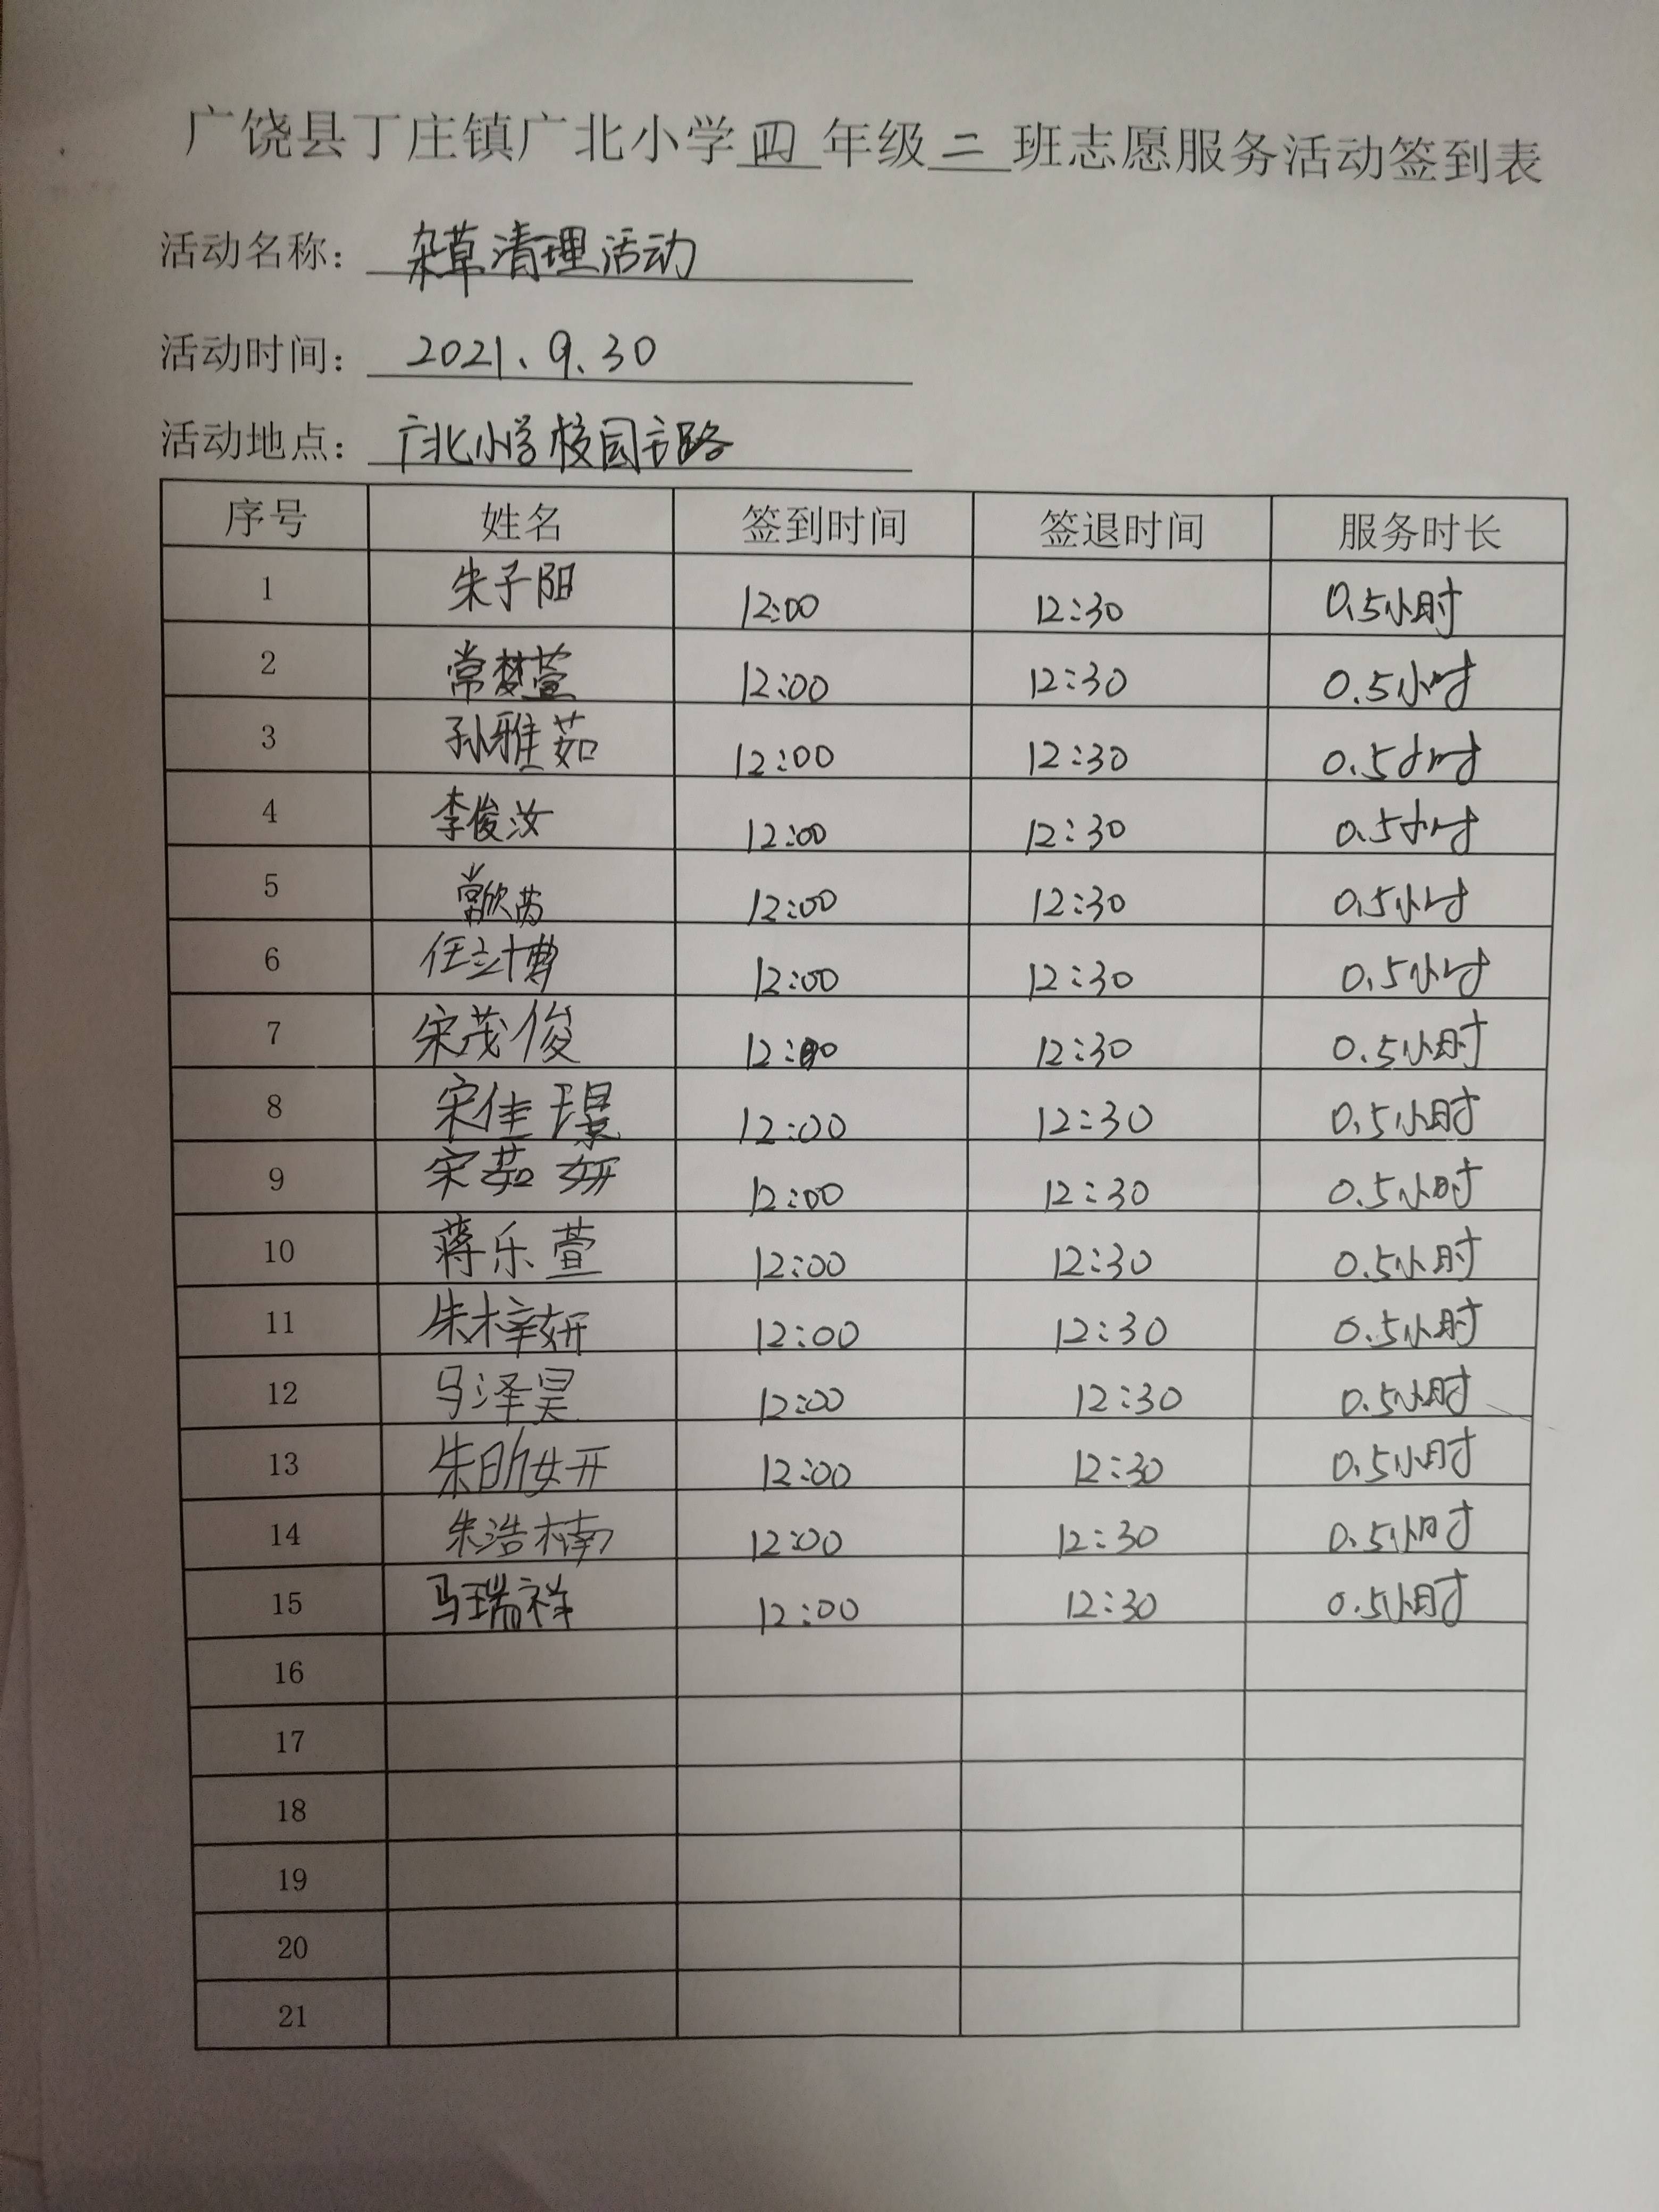 广饶县丁庄镇广北小学四年级二班志愿服务活动签到表
活动名称：杂草清理活动
活动时间：2021.9.30
活动地点：广北小学校园主路
序号 姓名 签到时间 签退时间 服务时长
1 朱子阳 12:00 12:30 0.5小时
2 常梦萱 12:00 12:30 0.5小时
3 孙雅茹 12:00 12:30 0.5小时
4 李俊汝 12:00 12:30 0.5小时
5 常欣 12:00 12:30 0.5小时
6 任立博 12:00 12:30 0.5小时
7 宋茂俊 12:00 12:30 0.5小时
8 宋佳璟 12:00 12:30 0.5小时
9 宋茹妍 12:00 12:30 0.5小时
10 蒋乐萱 12:00 12:30 0.5小时
11 朱梓妍 12:00 12:30 0.5小时
12 马泽昊 12:00 12:30 0.5小时
13 朱昕妍 12:00 12:30 0.5小时
14 朱浩楠 12:00 12:30 0.5小时
15 马瑞祥 12:00 12:30 0.5小时
16
17
18
19
20
21